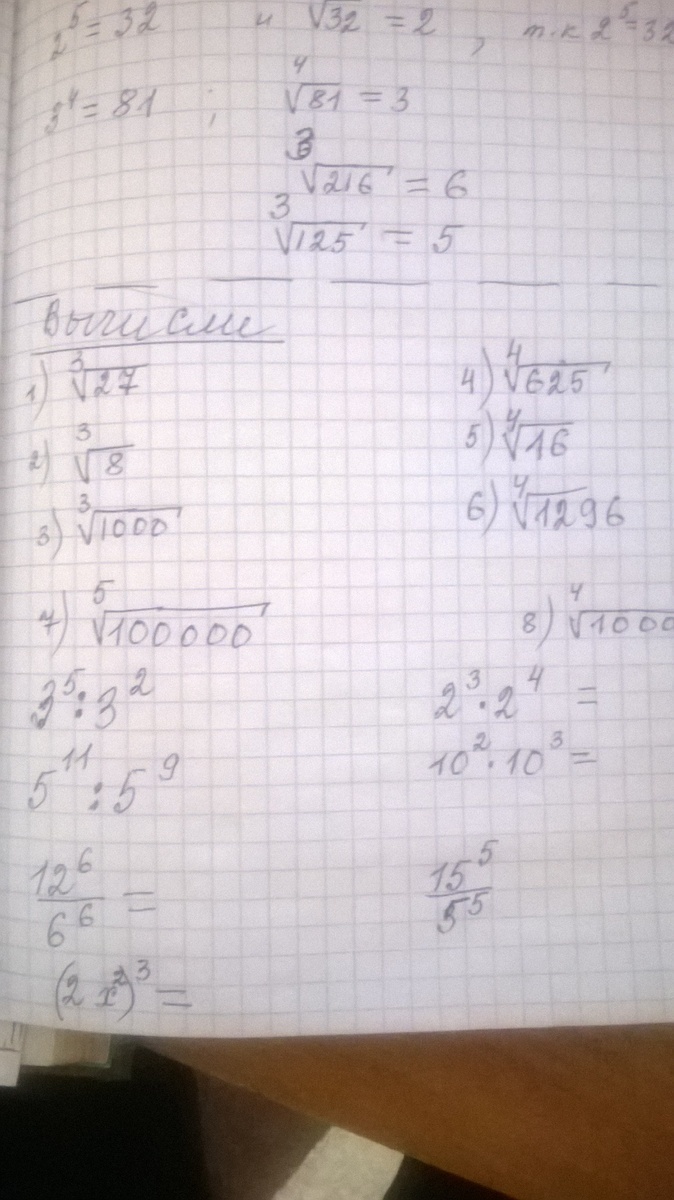 2⁵ = 32 и √32 = 2, т.к 2⁵ = 32
3⁴ = 81 ; ⁴√81 = 3
³√216 = 6
³√125 = 5
Вычисли
1) ³√27 4) ⁴√625
2) ³√8 5) ⁴√16
3) ³√1000 6) ⁴√1296
7) ⁵√100000 8) ⁴√1000
3⁵ : 3² 2³ · 2⁴ =
5¹¹ : 5⁹ 10² · 10³ =
12⁶/6⁶ = 15⁵/5⁵
(2x²)³ =